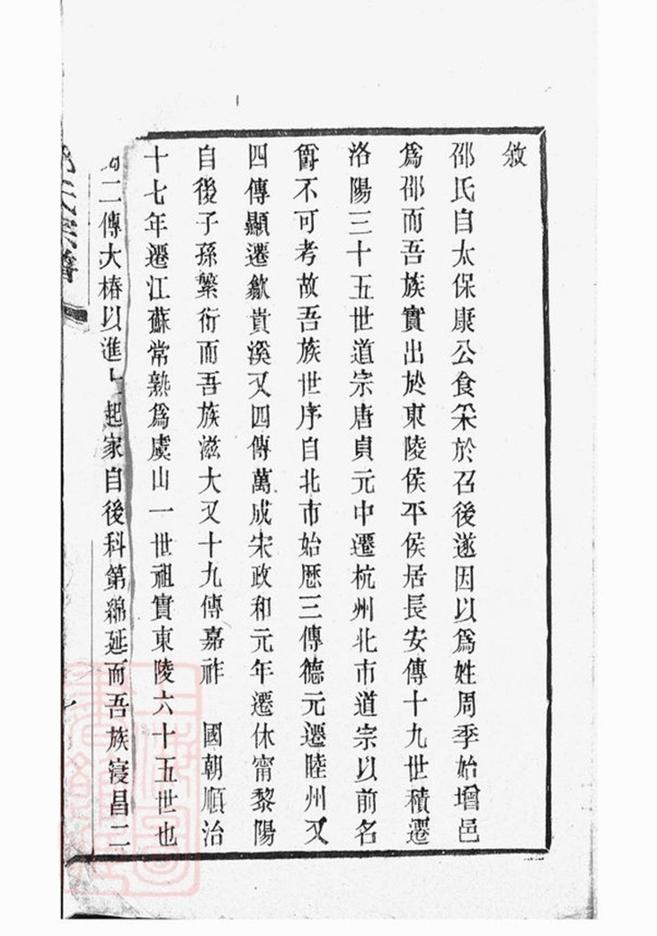 敘
邵氏自太保康公食采於召後遂因以爲姓周季始增邑
爲邵而吾族實出於東陵侯平侯居長安傳十九世積遷
洛陽三十五世道宗唐貞元中遷杭州北市道宗以前名
爵不可考故吾族世序自北市始歷三傳德元遷睦州又
四傳顯遷歙貴溪又四傳萬成宋政和元年遷休甯黎陽
自後子孫繁衍而吾族滋大又十九傳嘉祚　國朝順治
十七年遷江蘇常熟爲虞山一世祖實東陵六十五世也
二傳大椿以進士起家自後科第綿延而吾族寖昌二
氏宗譜